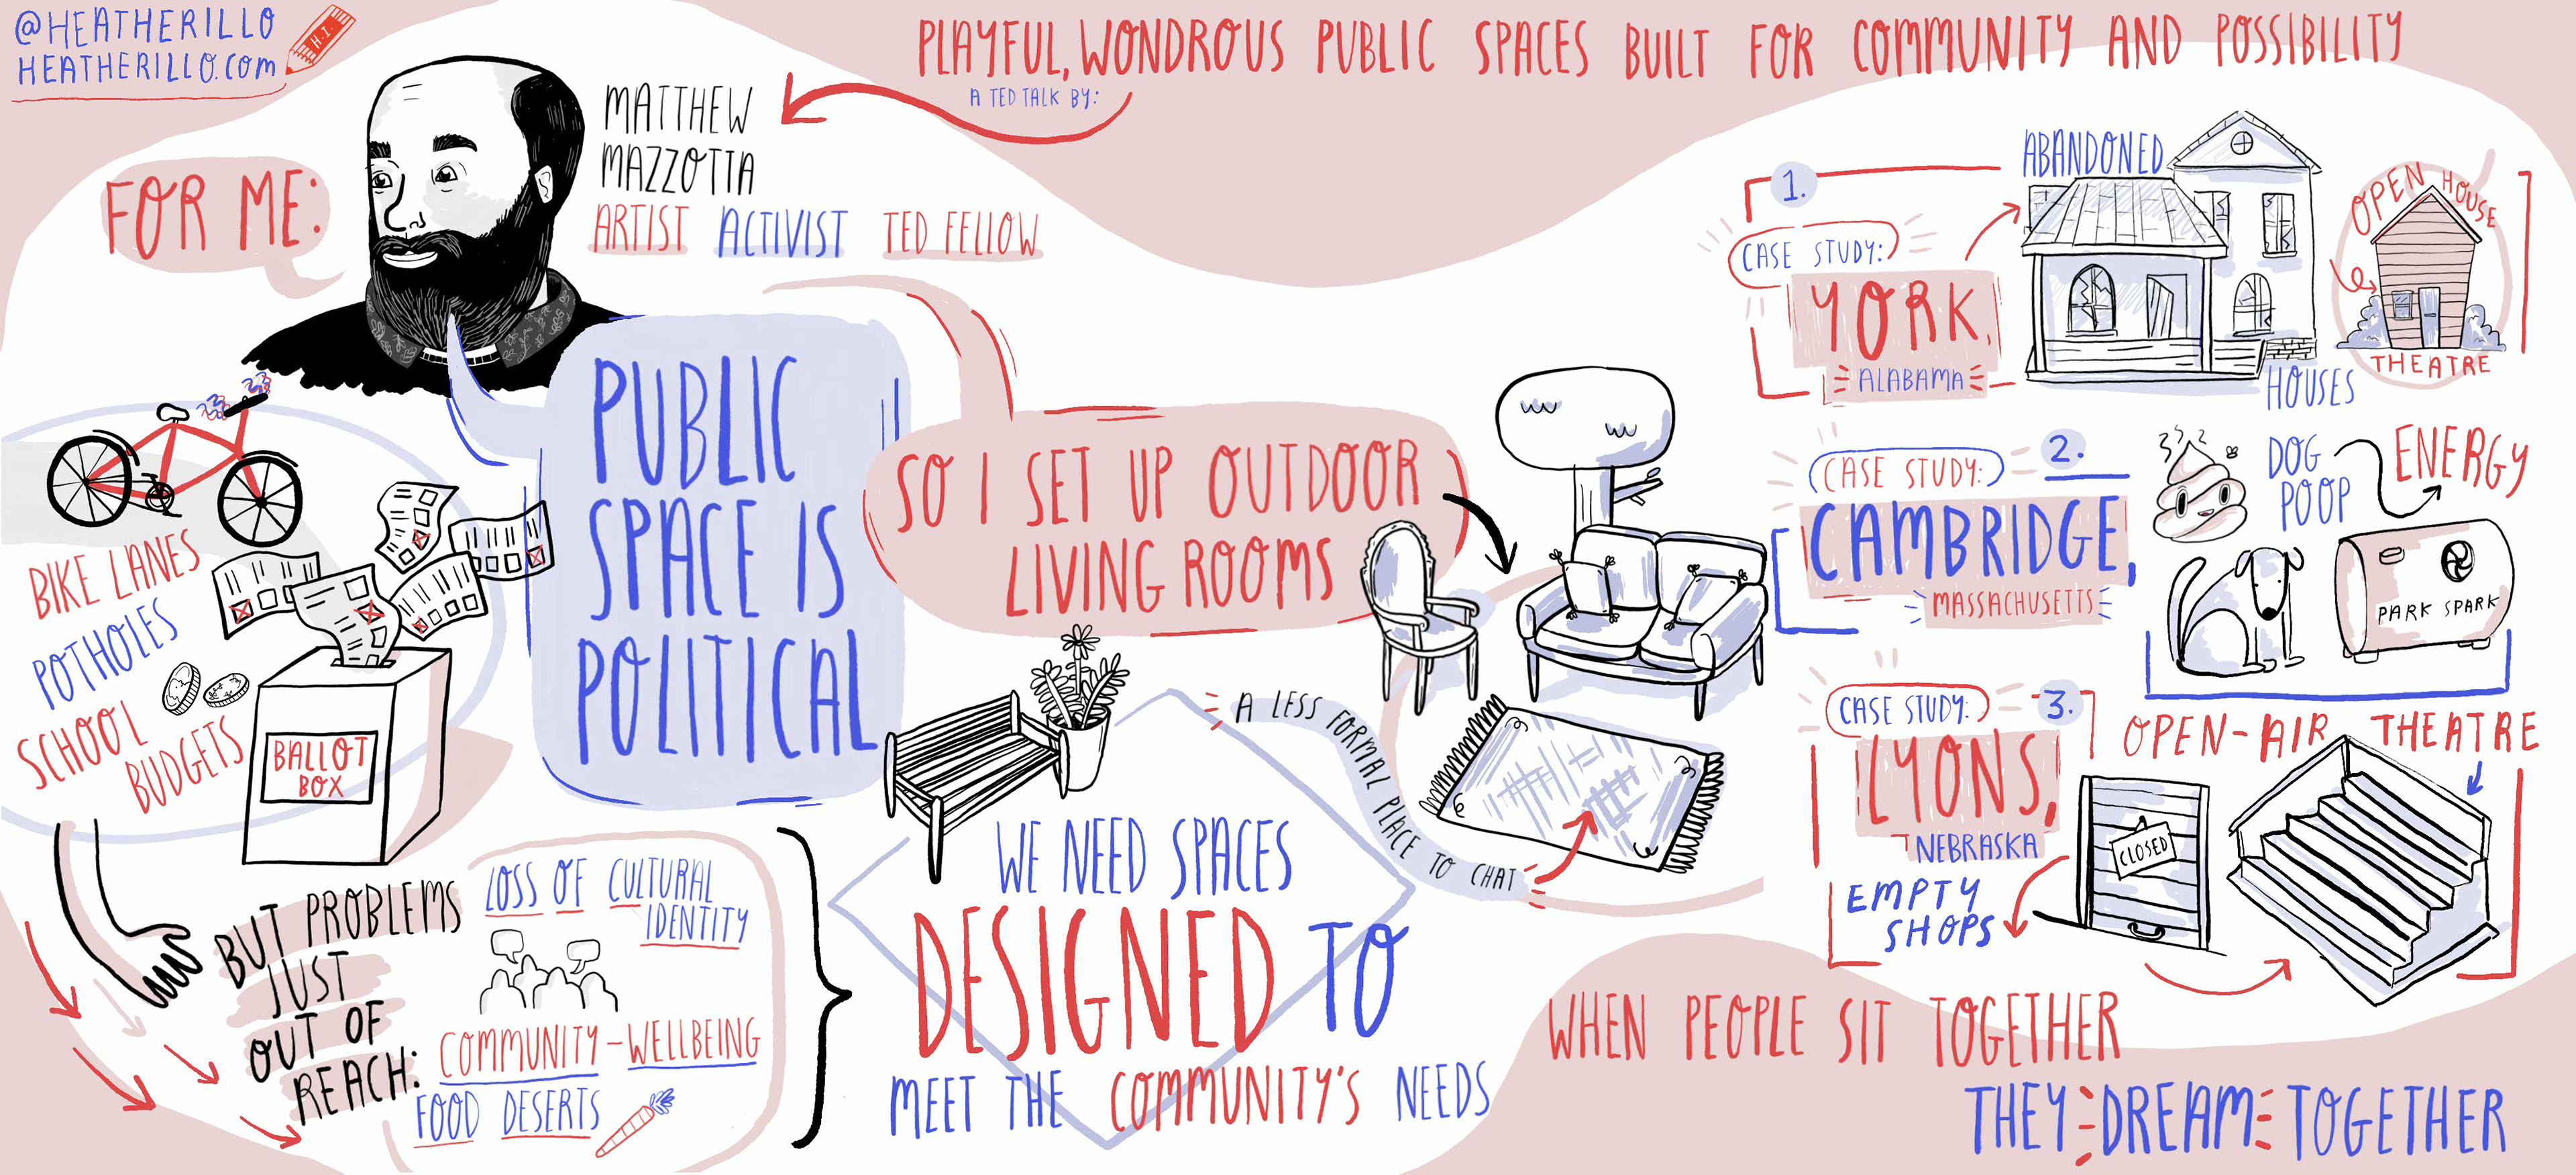 @HEATHERILLO
HEATHERILLO.COM
H.I.
PLAYFUL, WONDROUS PUBLIC SPACES BUILT FOR COMMUNITY AND POSSIBILITY
A TED TALK BY:
MATTHEW
MAZZOTTA
ARTIST ACTIVIST TED FELLOW
FOR ME:
PUBLIC
SPACE IS
POLITICAL
BIKE LANES
POTHOLES
SCHOOL
BUDGETS
BALLOT
BOX
BUT PROBLEMS
JUST
OUT OF
REACH:
LOSS OF CULTURAL
IDENTITY
COMMUNITY-WELLBEING
FOOD DESERTS
SO I SET UP OUTDOOR
LIVING ROOMS
A LESS FORMAL PLACE TO CHAT
WE NEED SPACES
DESIGNED TO
MEET THE COMMUNITY'S NEEDS
1.
CASE STUDY:
YORK,
ALABAMA
ABANDONED
HOUSES
OPEN HOUSE
THEATRE
2.
CASE STUDY:
CAMBRIDGE,
MASSACHUSETTS
DOG
POOP
ENERGY
PARK SPARK
3.
CASE STUDY:
LYONS,
NEBRASKA
EMPTY
SHOPS
CLOSED
OPEN-AIR THEATRE
WHEN PEOPLE SIT TOGETHER
THEY DREAM TOGETHER